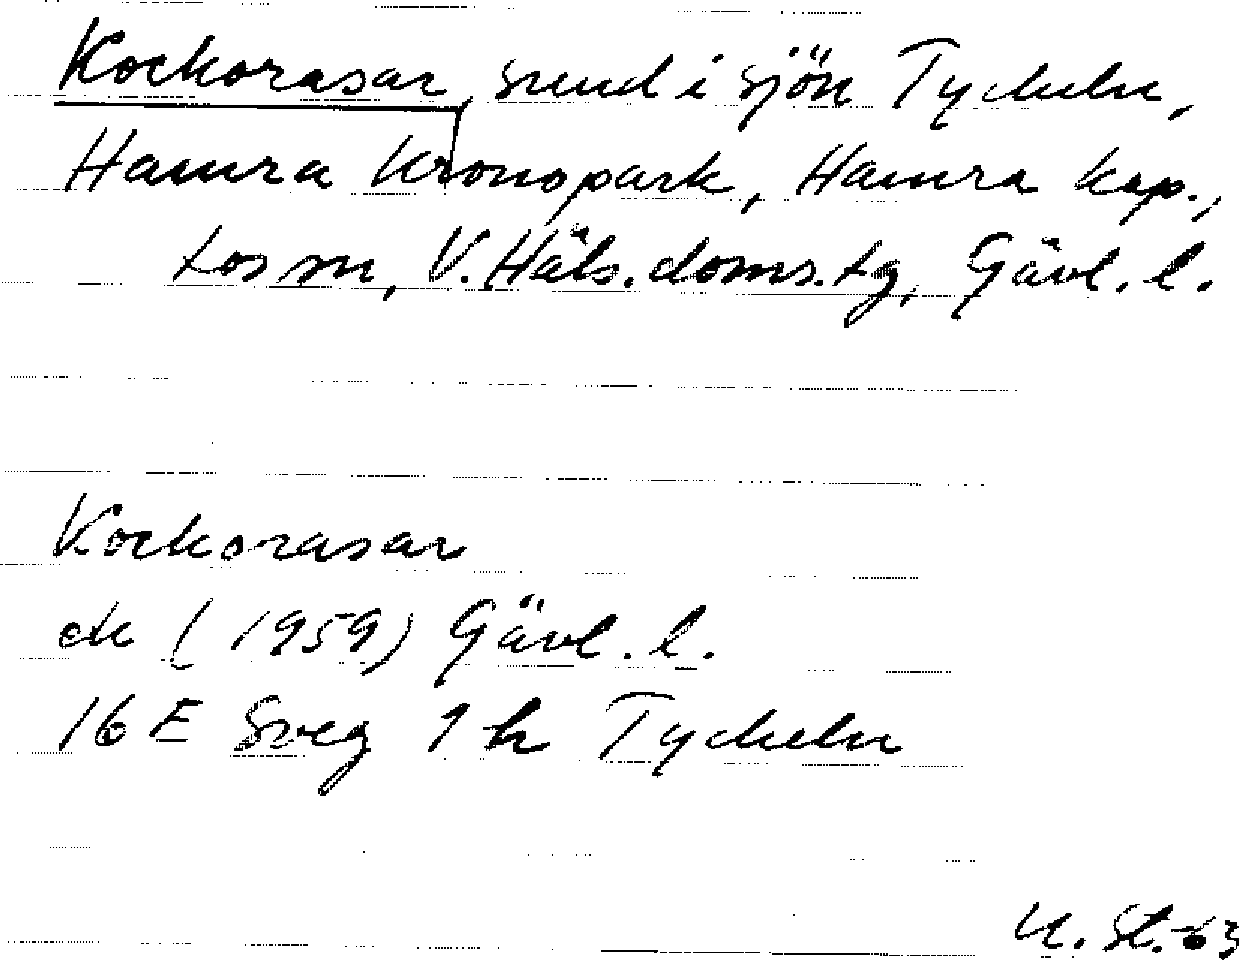 Kockorasar, sund i sjön Tyckeln,
Hamra Kronopark, Hamra kap.,
Los sn, V. Häls. doms. tg, Gävl. l.
Kockorasar
ek (1959) Gävl. l.
16 E Sveg 1 h Tyckeln
U. St. 63